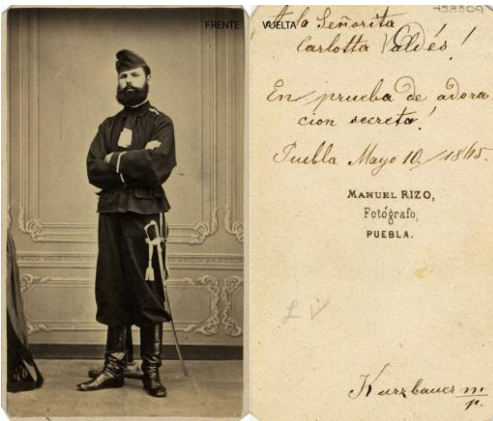 FRENTE
VUELTA
433309
A la Señorita
Carlotta Valdés!
En prueba de adora
cion secreta!
Puebla Mayo 10/1865.
MANUEL RIZO,
Fotógrafo,
PUEBLA.
L V
Kurzbauer m/p.